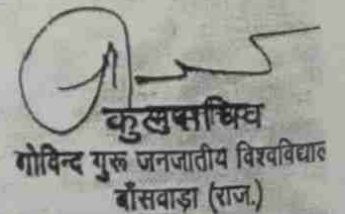 कुलसचिव
गोविन्द गुरू जनजातीय विश्वविद्याल
बाँसवाड़ा (राज.)